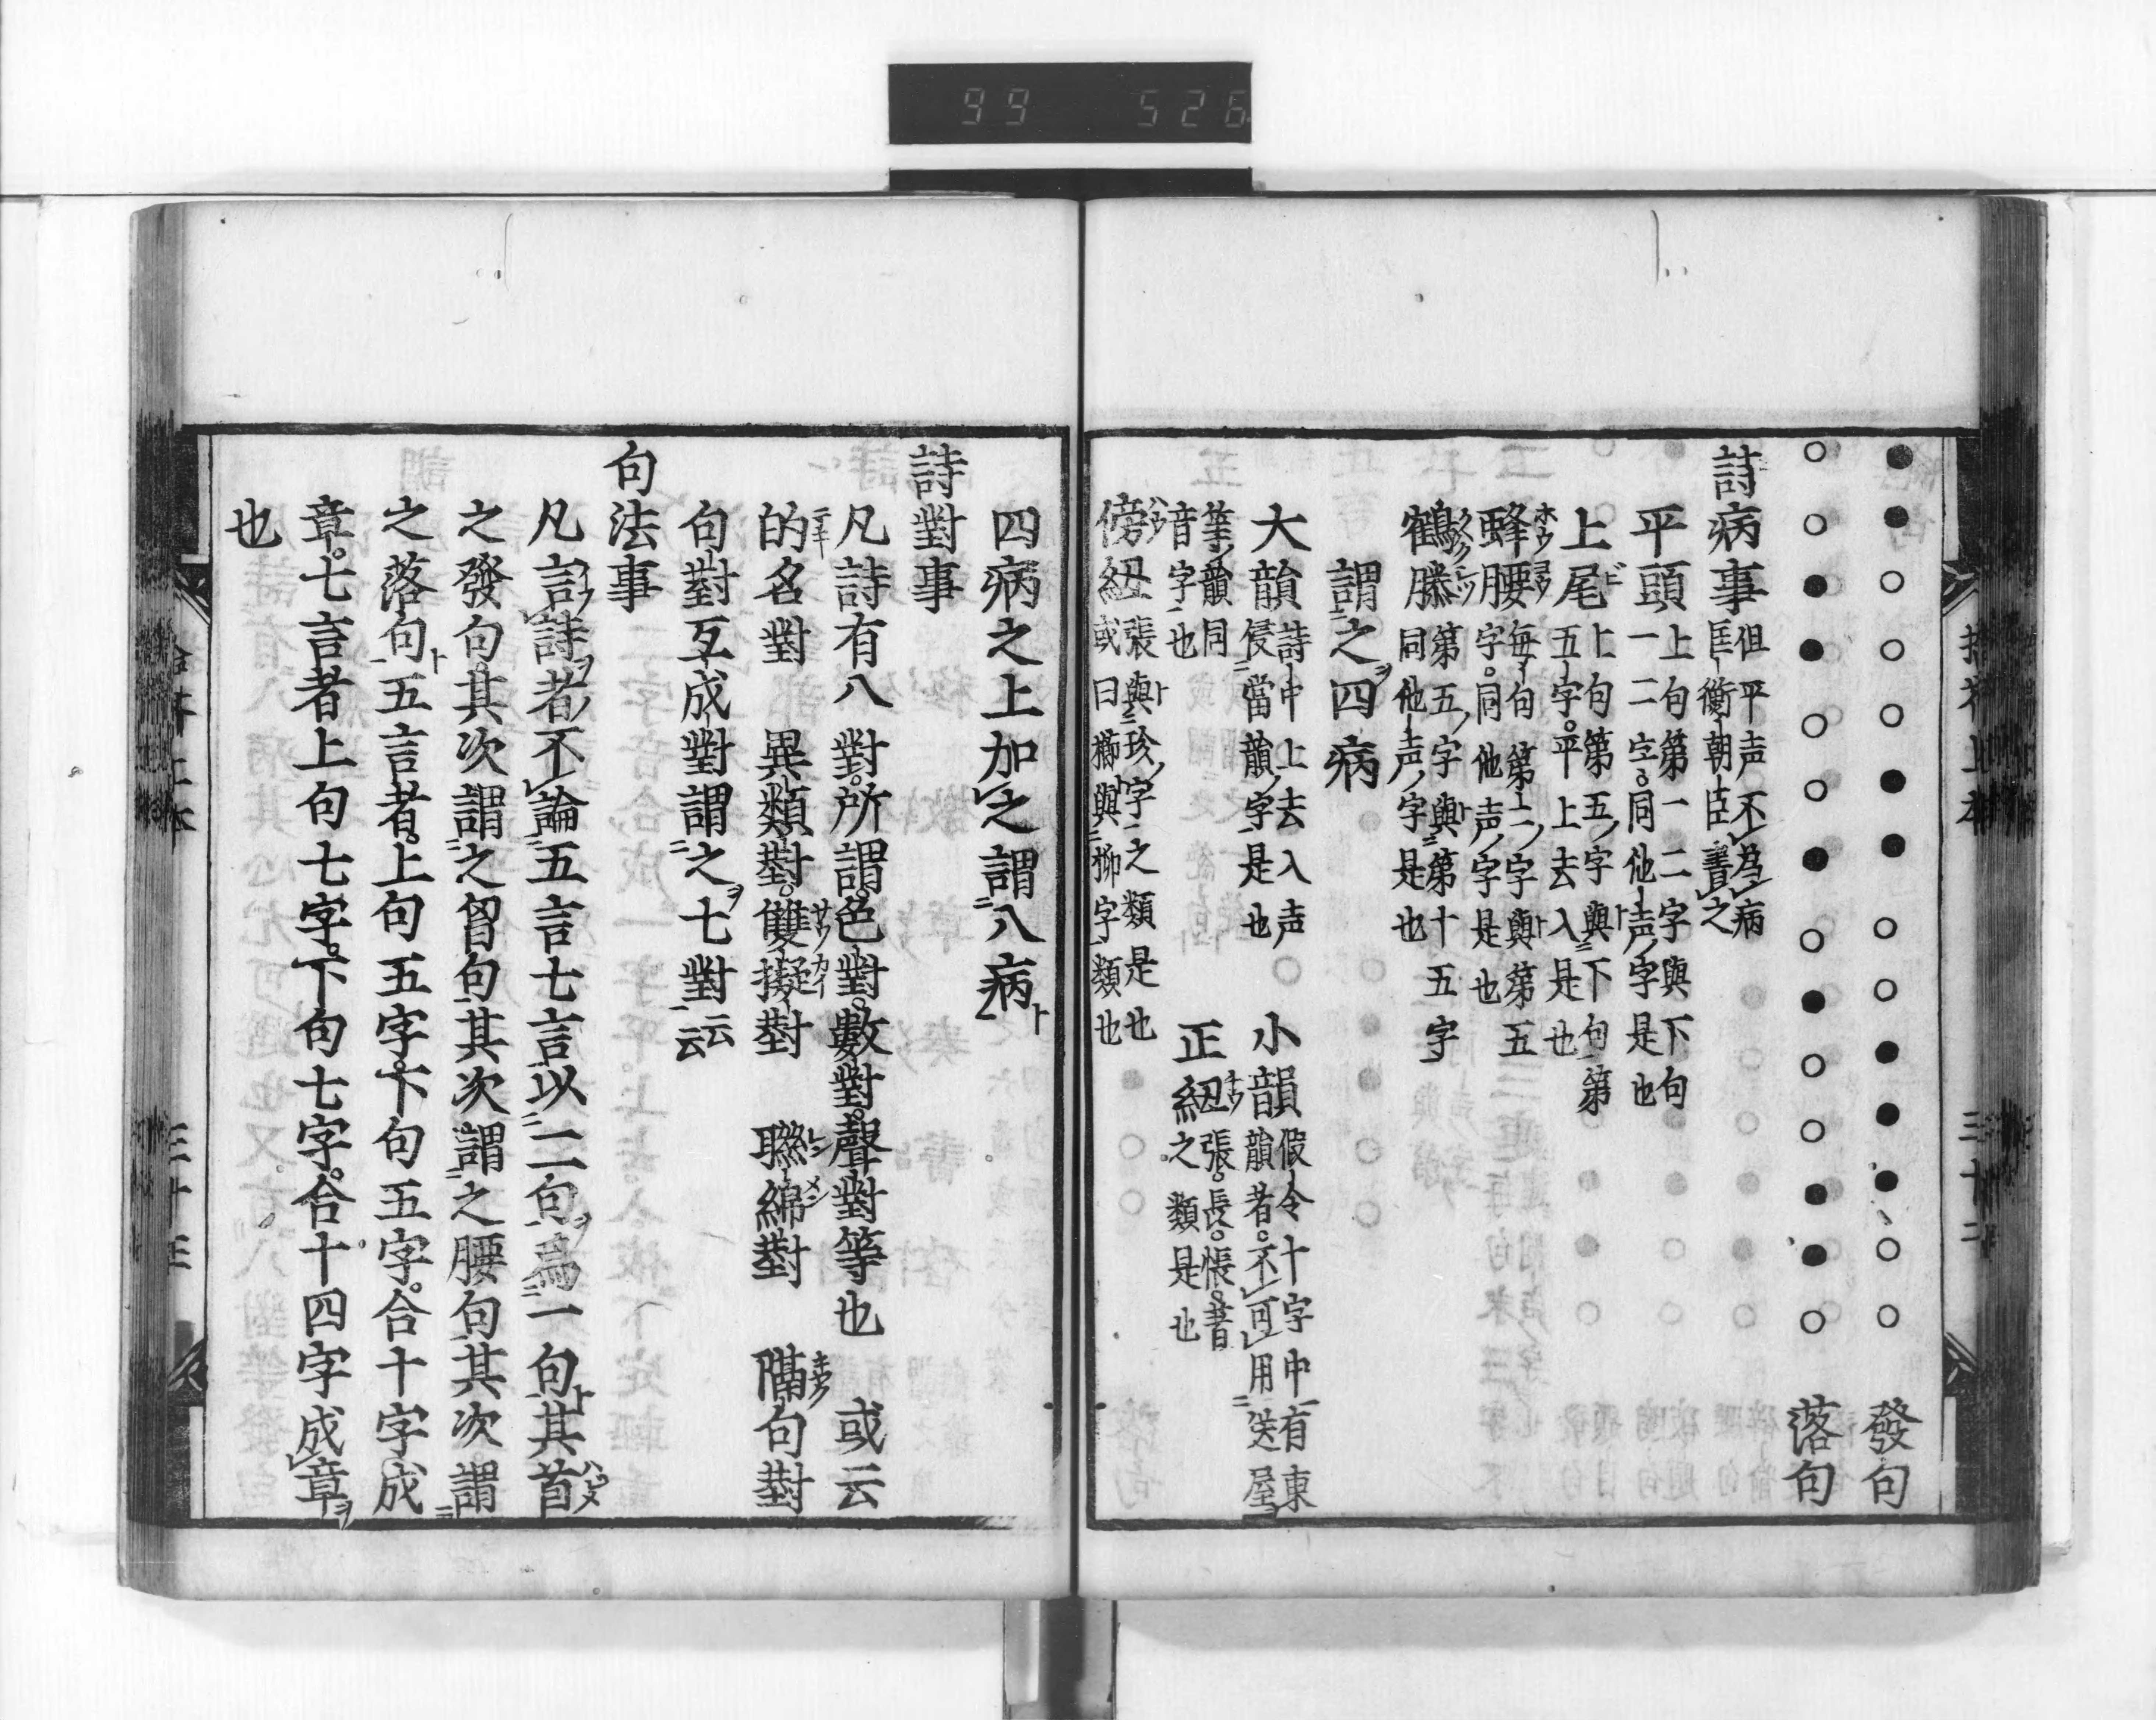 99 526
●●○○○●●○○●●●○○ 發句
○○●●○○●○●○○●●○ 落句
詩病事
但平声不為病
匡衡朝臣書之
平頭
上句第一二字與下句
一二字。同他声字是也
上尾
上句第五字與下句第
五字。平上去入是也
蜂腰
每句第二字與第五
字。同他声字是也
鶴膝
第五字與第十五字
同他声字是也
謂之四病
大韻
詩中上去入声
侵當韻字是也
小韻
假令十字中有東
韻者。不可用送屋
等韻同
音字也
正紐
張。長。悵。著
之類是也
傍紐
張與珍字之類是也
或曰櫛與柳字類也
四病之上加之謂八病
詩對事
凡詩有八對。所謂色對。數對。聲對等也 或云
的名對 異類對。雙擬對 聯綿對 隔句對
句對互成對謂之七對云云
句法事
凡言詩者不論五言七言以二句爲一句其首
之發句。其次謂之胷句其次謂之腰句其次謂
之落句五言者。上句五字。下句五字。合十字成
章。七言者上句七字。下句七字。合十四字成章
也